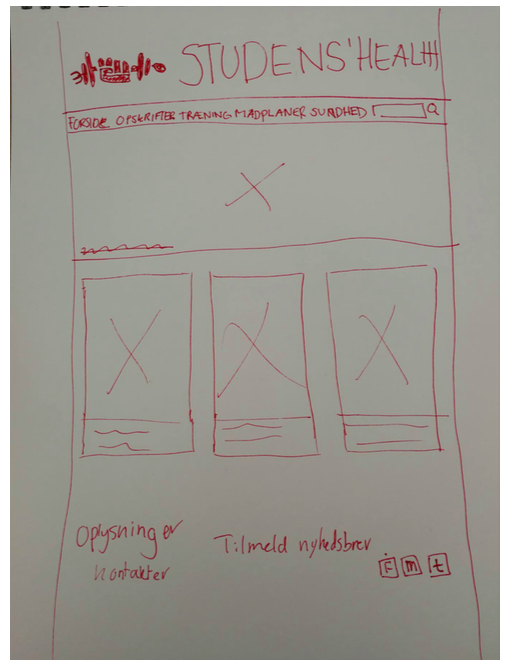 STUDENS'HEALTH
FORSIDE OPSKRIFTER TRÆNING MADPLANER SUNDHED
Oplysninger Tilmeld nyhedsbrev
Kontakter
F m t